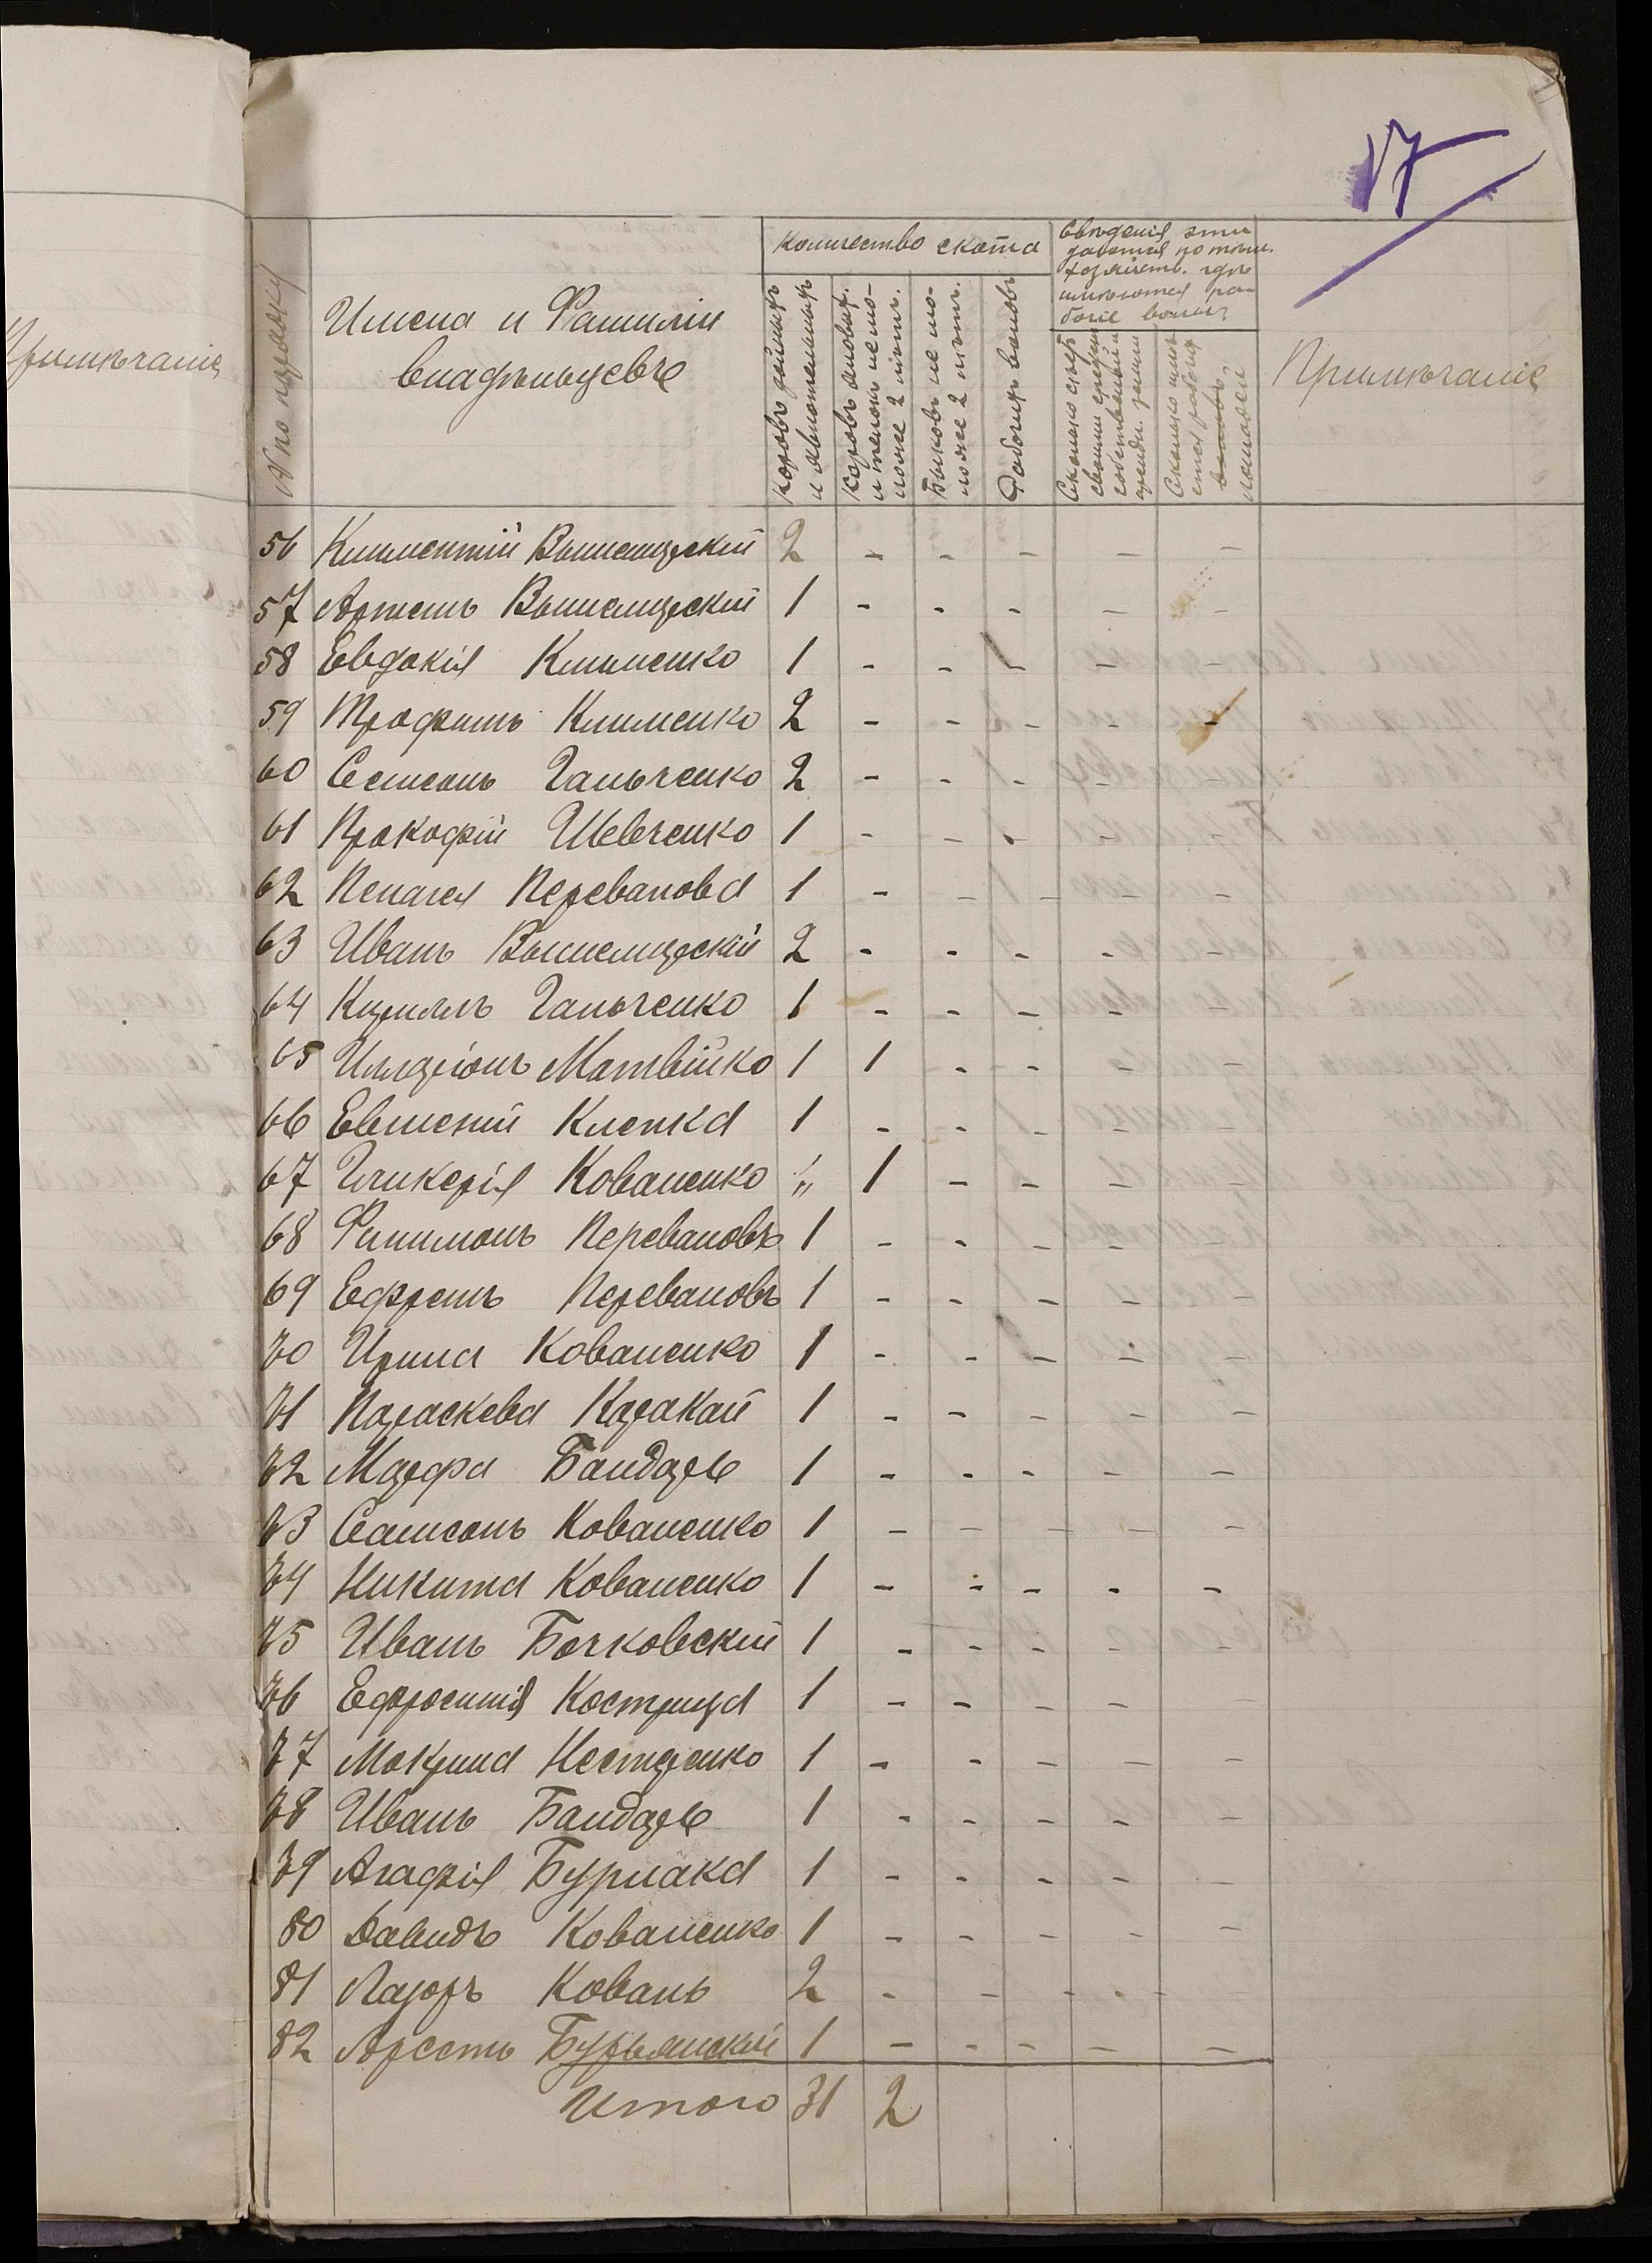 17
Примѣчаніе
№ по порядку
Имена и Фамиліи
владѣльцевъ
Количество скота
Коровъ дойныхъ
и
Коровъ яловых.
и телокъ не мо-
ложе 2 лѣтъ.
Быковъ не мо-
ложе 2 лѣтъ.
Рабочих воловъ
Свѣдѣнія эти
даются по тѣмъ
хозяйств. гдѣ
имѣются ра-
бочіе волы
Сколько
собственной и
аренд. земли
Сколько имѣ-
ется рабочих
воловъ
лошадей
Примѣчаніе
56 Климентій Вышемирскій 2 - - - - -
57 Артемъ Вышемирскій 1 - - - - -
58 Евдокія Клименко 1 - - - - -
59 Трофимъ Клименко 2 - - - - -
60 Семенъ Гальченко 2 - - - - -
61 Прокофій Шевченко 1 - - - - -
62 Пелагея Перевалова 1 - - - - -
63 Иванъ Вышемирскій 2 - - - - -
64 Кириллъ Гальченко 1 - - - - -
65 Илларіонъ Матвійко 1 1 - - - -
66 Евменій Клепка 1 - - - - -
67 Гликерія Коваленко " 1 - - - -
68 Филимонъ Переваловъ 1 - - - -
69 Ефремъ Переваловъ 1 - - - - -
70 Ирина Коваленко 1 - - - - -
71 Параскева Каракай 1 - - - - -
72 Марфа Бандарь 1 - - - - -
73 Самсонъ Коваленко 1 - - - - -
74 Никита Коваленко 1 - - - - -
75 Иванъ Бочковскій 1 - - - - -
76 Ефросинія Кострица 1 - - - - -
77 Мокрина Нестеренко 1 - - - - -
78 Иванъ Бандарь 1 - - - - -
79 Агафія Бурлака 1 - - - - -
80 Давидъ Коваленко 1 - - - - -
81 Лазарь Коваль 2 - - - - -
82 Арсеній Бурьянскій 1 - - - - -
Итого 31 2